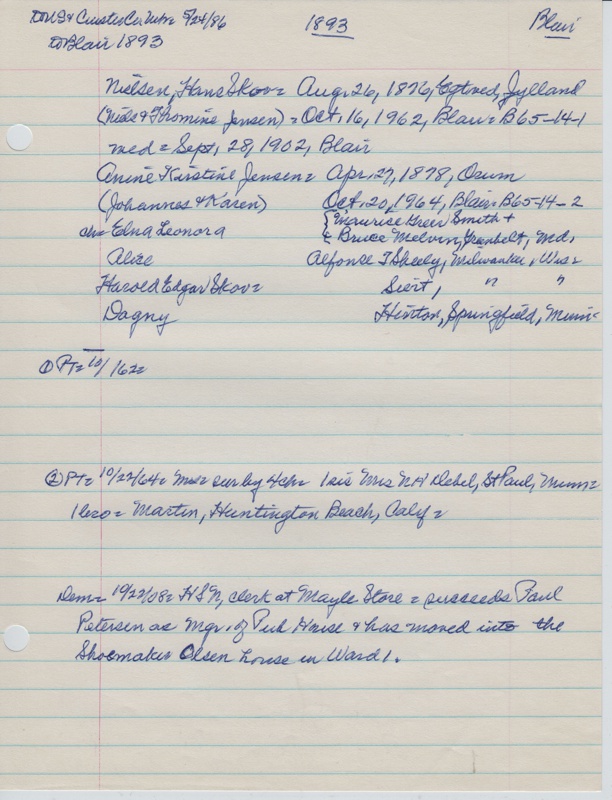 to US & Custer Co, Nebr 5/24/86 1893 Blair
to Blair 1893
Nielsen, Hans Skov = Aug. 26, 1876, Egtved, Jylland
(Niels & Thomine Jensen) = Oct. 16, 1962, Blair = B65-14-1
med = Sept. 28, 1902, Blair
Anine Kirstine Jensen = Apr. 27, 1878, Orum
(Johannes & Karen) Oct. 20, 1964, Blair = B65-14-2
ch = Edna Leonora { Maurice Greer Smith +
& Bruce Melvin, Greenbelt, Md.
Alice Alfonce T Sheely, Milwaukee, Wis =
Harold Edgar Skov = Siert, " "
Dagny Hinton, Springfield, Minn =
① PT = 10/ /62 =
② PT = 10/22/64 = Mrs = sur by 4 ch = 1 sis Mrs NH Debel, St Paul, Minn =
1 bro = Martin, Huntington Beach, Calif =
Dem = 10/22/08 = HSN, clerk at Mayle Store = succeeds Paul
Petersen as Mgr. of Pub House & has moved into the
Shoemaker Olsen house in Ward 1.